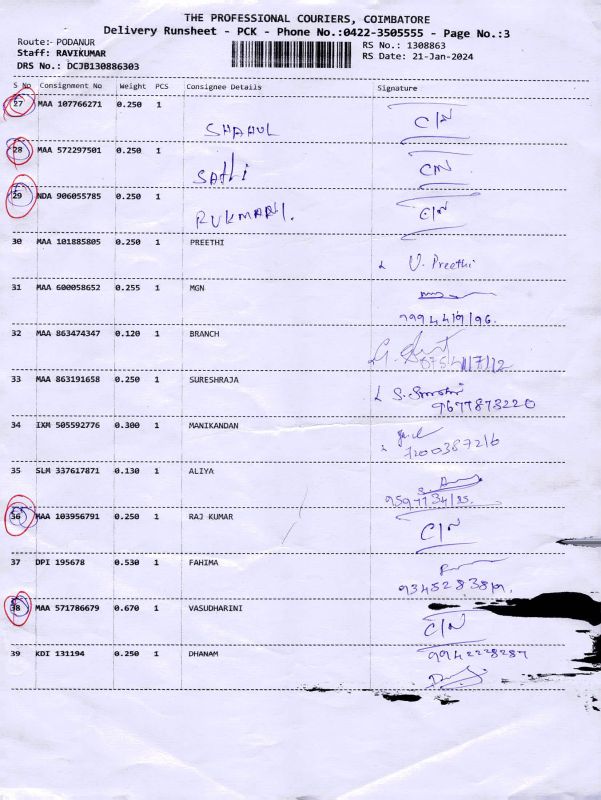 THE PROFESSIONAL COURIERS, COIMBATORE
Delivery Runsheet - PCK - Phone No.:0422-3505555 - Page No.:3
Route:- PODANUR
RS No.: 1308863
Staff: RAVIKUMAR
RS Date: 21-Jan-2024
DRS No.: DCJB130886303
S No Consignment No Weight PCS Consignee Details Signature
27 MAA 107766271 0.250 1
SHAHUL C/N
28 MAA 572297501 0.250 1
SATHI C/N
29 NDA 906055785 0.250 1
RUKMANI. C/N
30 MAA 101885805 0.250 1 PREETHI
V. Preethi
31 MAA 600058652 0.255 1 MGN
32 MAA 863474347 0.120 1 BRANCH
33 MAA 863191658 0.250 1 SURESHRAJA
9677873220
34 IXM 505592776 0.300 1 MANIKANDAN
7200387216
35 SLM 337617871 0.130 1 ALIYA
36 MAA 103956791 0.250 1 RAJ KUMAR
C/N
37 DPI 195678 0.530 1 FAHIMA
38 MAA 571786679 0.670 1 VASUDHARINI
C/N
39 KDI 131194 0.250 1 DHANAM 9942228287